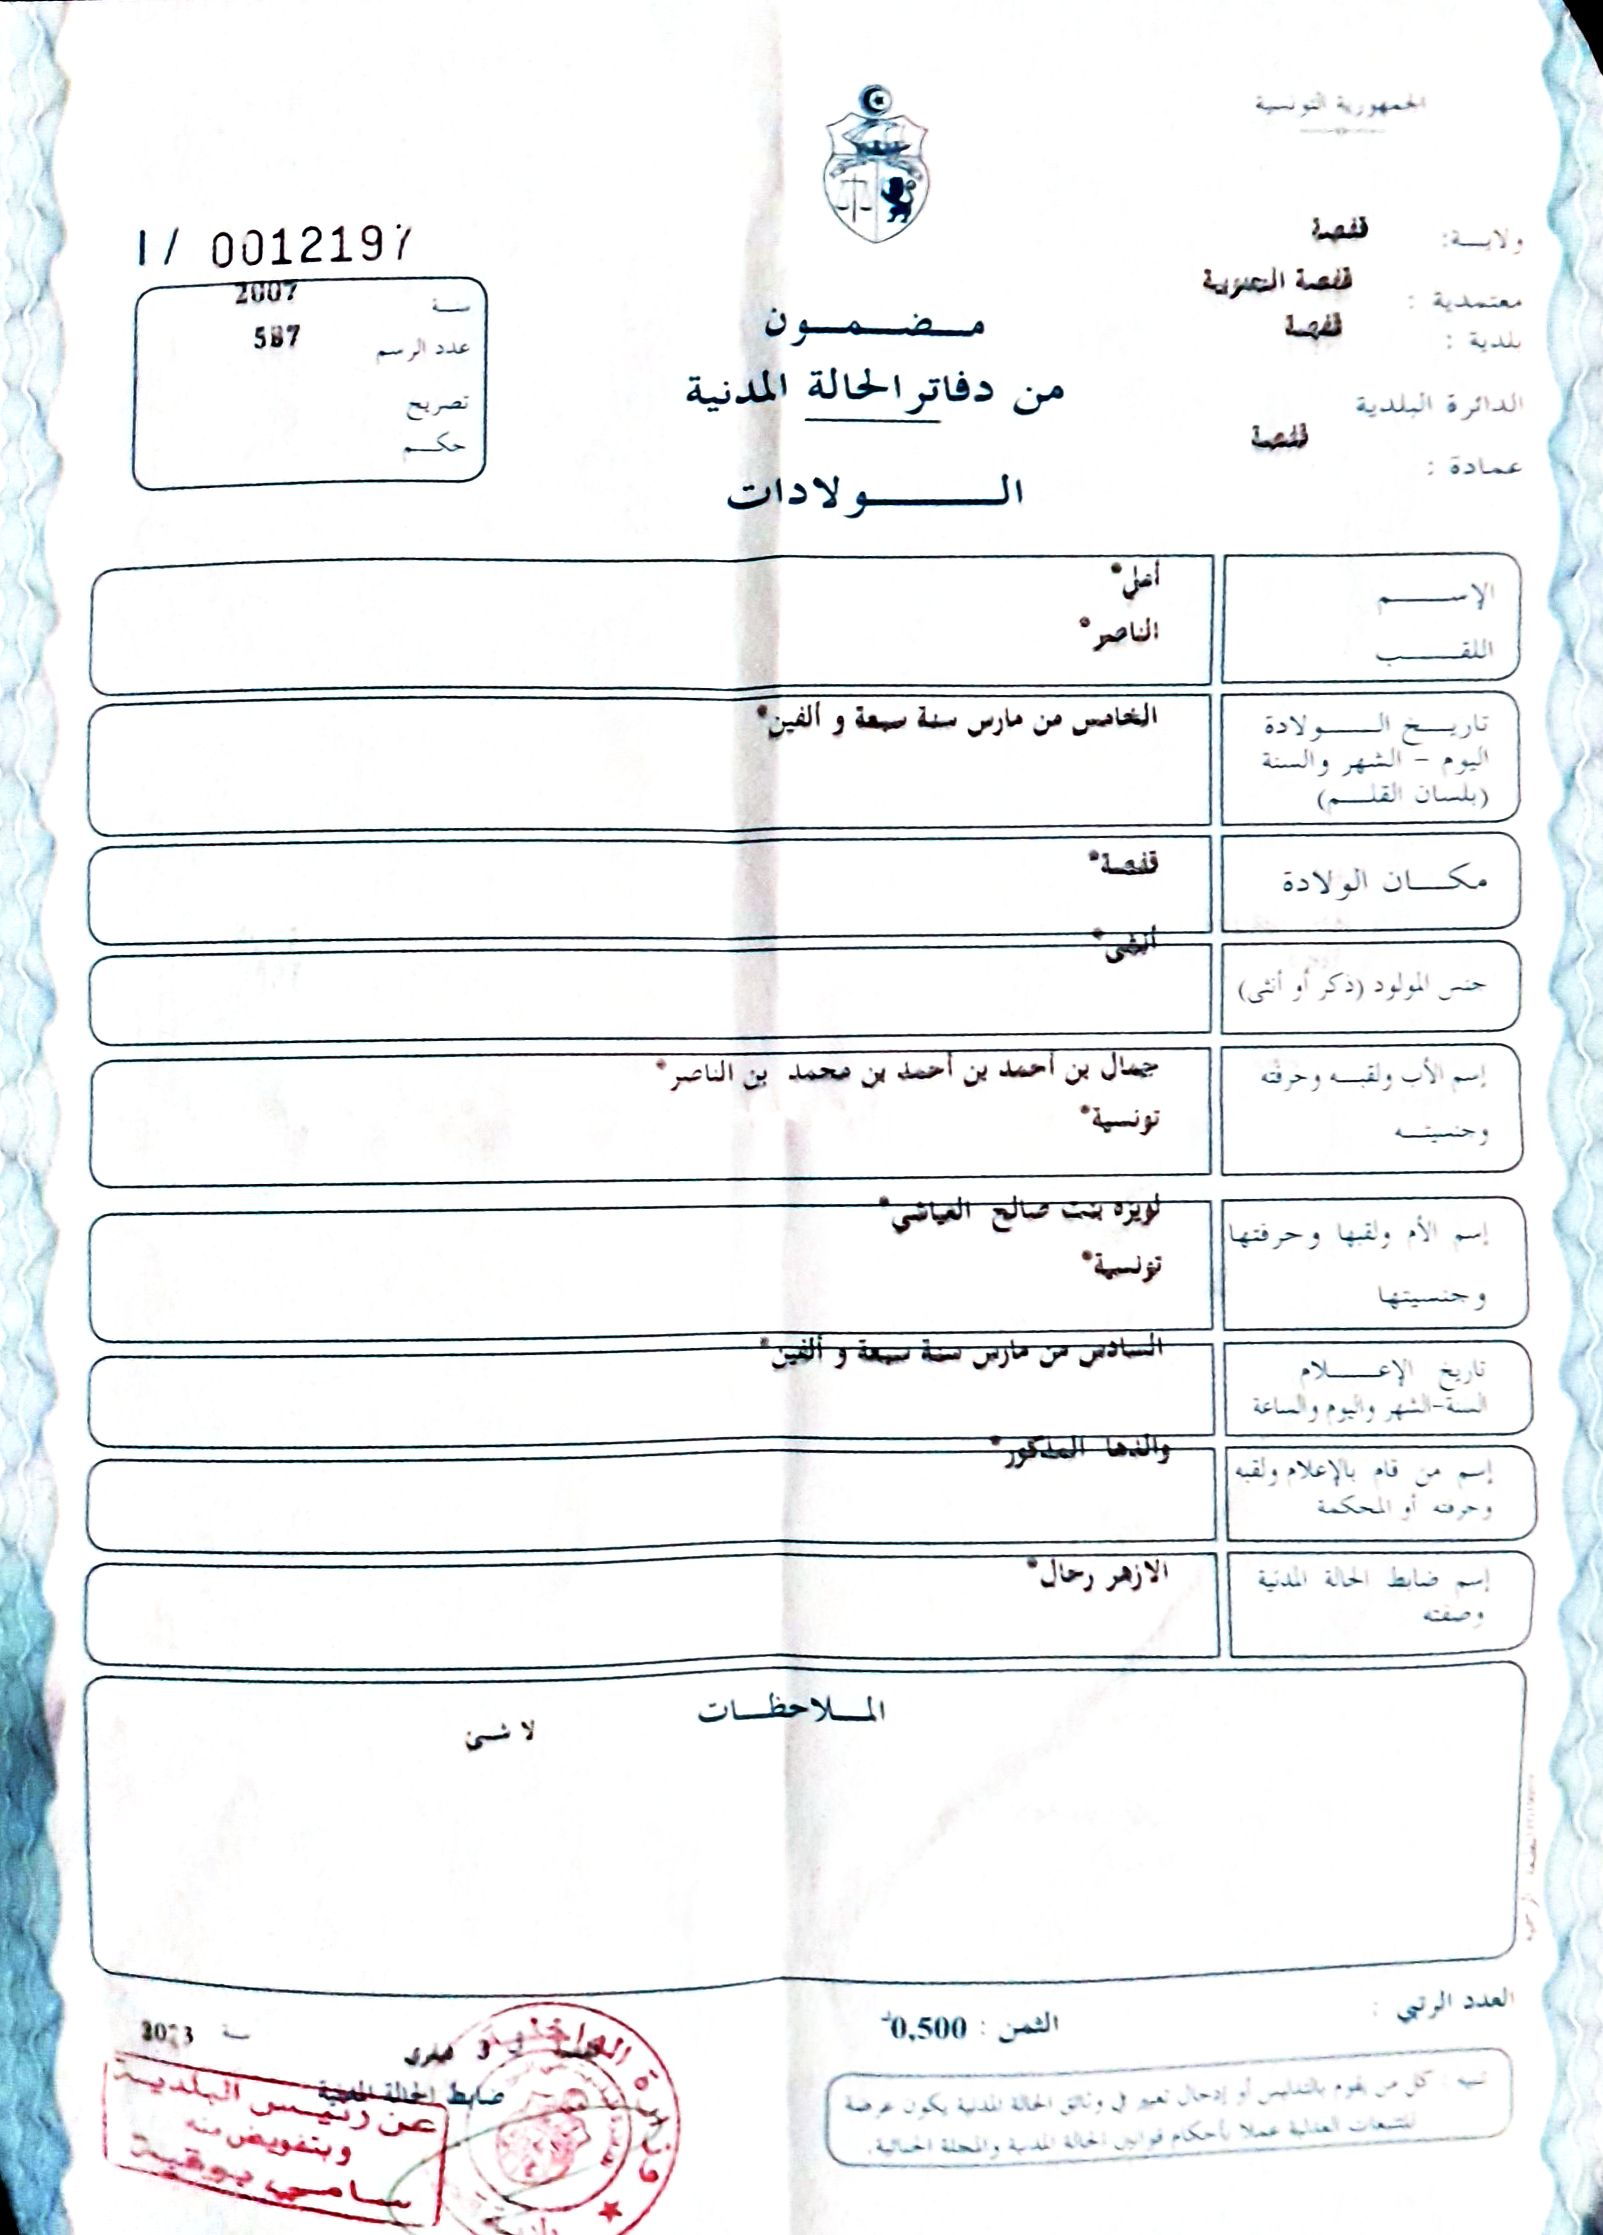 الجمهورية التونسية
ولاية: قفصة
معتمدية : قفصة الجنوبية
بلدية : قفصة
الدائرة البلدية
قفصة
عمادة :
I / 0012197
سنة 2007
عدد الرسم 587
تصريح
حكم
مضمون
من دفاتر الحالة المدنية
الولادات
الإسم
اللقب
الناصر*
تاريخ الولادة
اليوم - الشهر والسنة
(بلسان القلم)
الخامس من مارس سنة سبعة و ألفين*
مكان الولادة
قفصة*
جنس المولود (ذكر أو أنثى)
أنثى*
إسم الأب ولقبه وحرفته
وجنسيته
جمال بن أحمد بن أحمد بن محمد بن الناصر*
تونسية*
إسم الأم ولقبها وحرفتها
وجنسيتها
لويزه بنت صالح العياشي*
تونسية*
تاريخ الإعلام
السنة-الشهر واليوم والساعة
السادس من مارس سنة سبعة و ألفين*
إسم من قام بالإعلام ولقبه
وحرفته أو المحكمة
والدها المذكور*
إسم ضابط الحالة المدنية
وصفته
الازهر رحال*
الملاحظات
لا شئ
العدد الرتبي :
الثمن : 0,500د
تنبيه : كل من يقوم بالتدليس أو إدخال تغيير في وثائق الحالة المدنية يكون عرضة
للتتبعات العدلية عملا بأحكام قوانين الحالة المدنية والمجلة الجنائية.
سنة 2023
ضابط الحالة المدنية
عن رئيس البلدية
وبتفويض منه